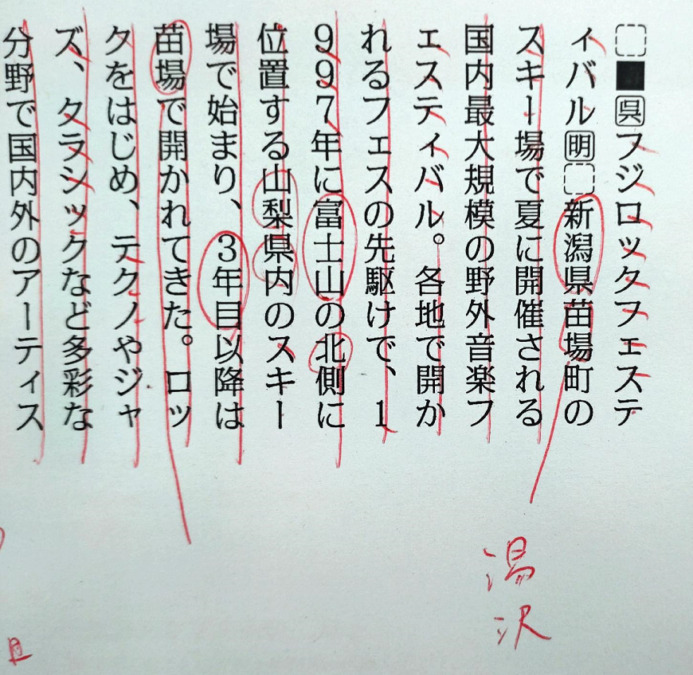 ■㋰フジロックフェステ
ィバル明新潟県苗場町の
スキー場で夏に開催される
国内最大規模の野外音楽フ
ェスティバル。各地で開か
れるフェスの先駆けで、1
997年に富士山の北側に
位置する山梨県内のスキー
場で始まり、3年目以降は
苗場で開かれてきた。ロッ
クをはじめ、テクノやジャ
ズ、クラシックなど多彩な
分野で国内外のアーティス
湯沢